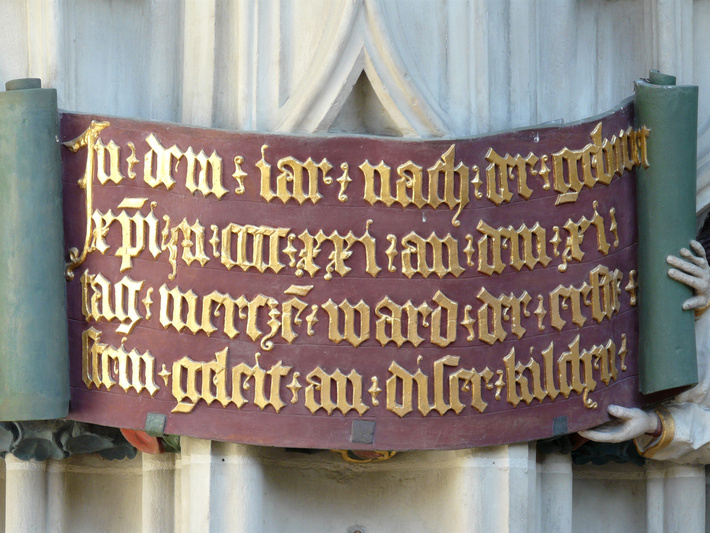 In · dem · iar · nach · der · geburt
xp̄i · zu · cccc · xxi · an · dem · xi ·
tag · merczē · ward · der · erste ·
stein · geleit · an · diser · kilchen ·